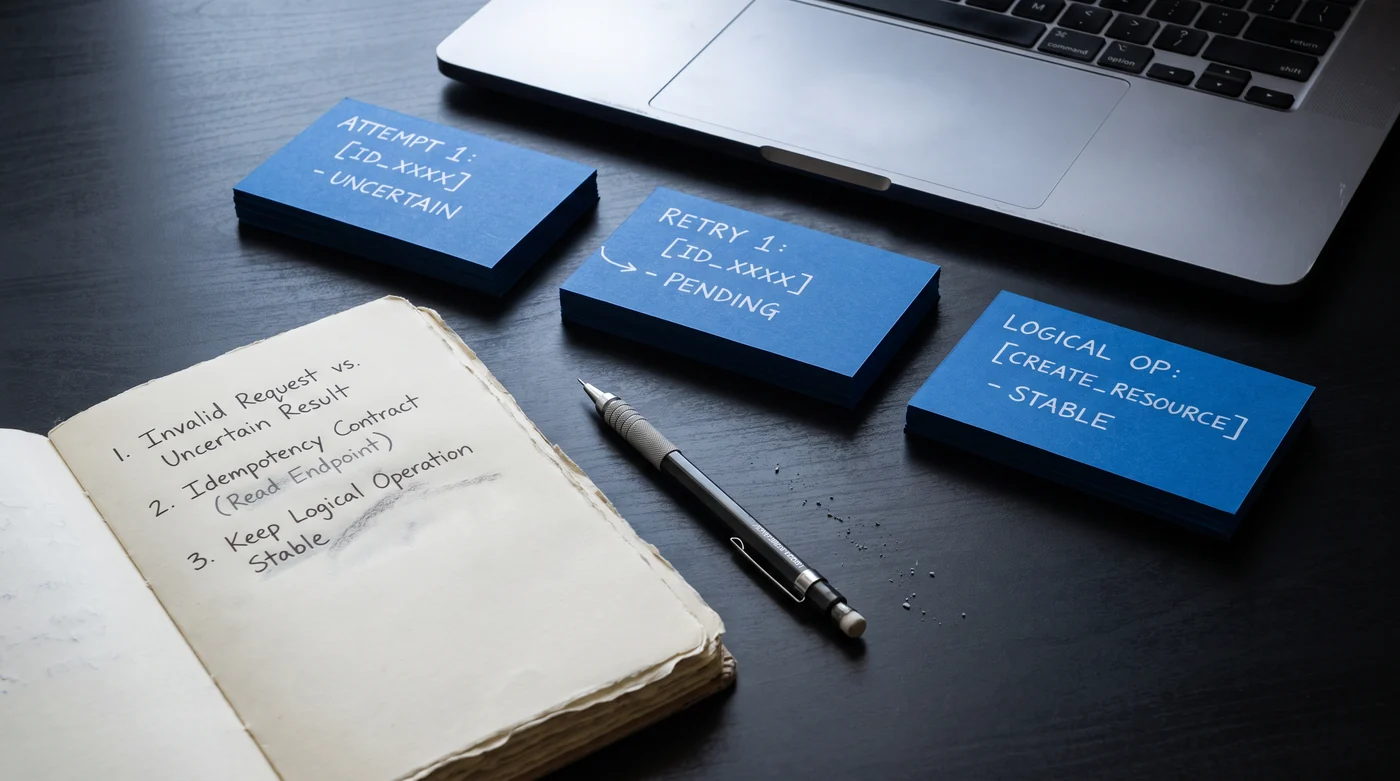 ATTEMPT 1:
[ID_XXXX]
- UNCERTAIN
RETRY 1:
[ID_XXXX]
- PENDING
LOGICAL OP:
[CREATE_RESOURCE]
- STABLE
1. Invalid Request vs.
Uncertain Result
2. Idempotency Contract
(Read Endpoint)
3. Keep Logical Operation
Stable
M
command
option
return
shift